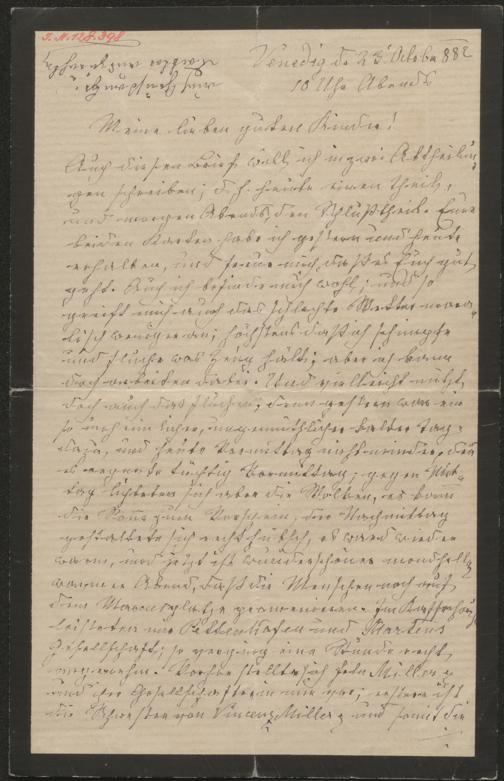 I.N. 128.398
Venedig d. 23t October 882
10 Uhr Abends
Meine lieben guten Kinder!
Auch diesen Brief will ich in zwei Abtheilun-
gen schreiben; d.h. heute einen Theil,
und morgen Abends den Schlußtheil. Eure
beiden Karten habe ich gestern und heute
erhalten, und freue mich, daß es Euch gut
geht. Auch ich befinde mich wohl; und so
greift mich auch das schlechte Wetter mora-
lisch weniger an; höchstens daß ich schimpfe
und fluche was Zeug hält; aber ich kann
doch arbeiten dabei. Und vielleicht nützt
doch auch das Fluchen; denn gestern war ein
so ungemüthlicher kalter Tag
und heute Vormittag nicht minder, denn
es regnete tüchtig Vormittag; gegen Mit-
tag lichteten sich aber die Wolken, es kam
die Sonne zum Vorschein, der Nachmittag
gestaltete sich recht hübsch, es ward wieder
warm, und jetzt ist wunderschöner mondheller
warmer Abend, daß die Menschen noch auf
dem Marcusplatze promeniren. Im Kaffeehaus
leisteten mir Pettenkofen und
Gesellschaft; so verging eine Stunde recht
angenehm. Vorher stellte sich Frln Miller
und ihre Gesellschafterin mir vor; erstere ist
die Schwester von Vincenz Miller, und somit die